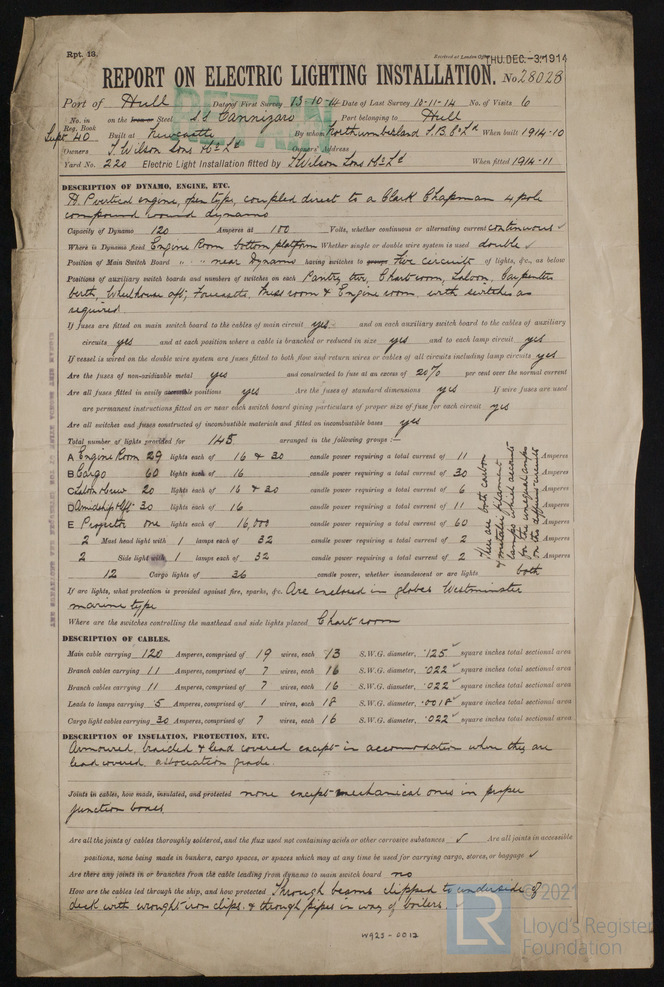 Rpt. 13.
Received at London Office THU. DEC. -3. 1914
REPORT ON ELECTRIC LIGHTING INSTALLATION. No 28028
Port of Hull Date of First Survey 13-10-14 Date of Last Survey 10-11-14 No. of Visits 6
No. in Reg. Book on the Iron or Steel Cannizaro Port belonging to Hull
Sept 40 Built at Newcastle By whom Northumberland S.B. Co Ld When built 1914-10
Owners T Wilson Sons & Co Ld Owners' Address
Yard No. 220 Electric Light Installation fitted by T Wilson Sons & Co Ld When fitted 1914-11
DESCRIPTION OF DYNAMO, ENGINE, ETC.
vertical engine, open type, coupled direct to a Clark Chapman 4 pole
compound wound dynamo
Capacity of Dynamo 120 Amperes at 100 Volts, whether continuous or alternating current continuous ✓
Where is Dynamo fixed Engine Room bottom platform Whether single or double wire system is used double ✓
Position of Main Switch Board " " near Dynamo having switches to groups five circuits of lights, &c., as below
Positions of auxiliary switch boards and numbers of switches on each Pantry, Chart room, Saloon, Carpenters
berth, Wheelhouse aft; Forecastle, Mess room & Engine room with switches as
required
If fuses are fitted on main switch board to the cables of main circuit yes and on each auxiliary switch board to the cables of auxiliary
circuits yes and at each position where a cable is branched or reduced in size yes and to each lamp circuit yes
If vessel is wired on the double wire system are fuses fitted to both flow and return wires or cables of all circuits including lamp circuits yes
Are the fuses of non-oxidizable metal yes and constructed to fuse at an excess of 20% per cent over the normal current
Are all fuses fitted in easily accessible positions yes Are the fuses of standard dimensions yes If wire fuses are used
are permanent instructions fitted on or near each switch board giving particulars of proper size of fuse for each circuit yes
Are all switches and fuses constructed of incombustible materials and fitted on incombustible bases yes
Total number of lights provided for 145 arranged in the following groups :—
A Engine Room 29 lights each of 16 & 30 candle power requiring a total current of 11 Amperes
B Cargo 60 lights each of 16 candle power requiring a total current of 30 Amperes
C Saloon & crew 20 lights each of 16 & 30 candle power requiring a total current of 6 Amperes
D Amidship & Aft 30 lights each of 16 candle power requiring a total current of 11 Amperes
E Projector one lights each of 16,000 candle power requiring a total current of 60 Amperes
2 Mast head light with 1 lamps each of 32 candle power requiring a total current of 2 Amperes
2 Side light with 1 lamps each of 32 candle power requiring a total current of 2 Amperes
There are both carbon
& metallic filament
lamps which accounts
for the unequal amps
on the different circuits
12 Cargo lights of 36 candle power, whether incandescent or arc lights both
If arc lights, what protection is provided against fire, sparks, &c. Are enclosed in globes Westminster
marine type
Where are the switches controlling the masthead and side lights placed Chart room
DESCRIPTION OF CABLES.
Main cable carrying 120 Amperes, comprised of 19 wires, each 13 S.W.G. diameter, .125 ✓ square inches total sectional area
Branch cables carrying 11 Amperes, comprised of 7 wires, each 16 S.W.G. diameter, .022 ✓ square inches total sectional area
Branch cables carrying 11 Amperes, comprised of 7 wires, each 16 S.W.G. diameter, .022 ✓ square inches total sectional area
Leads to lamps carrying 5 Amperes, comprised of 1 wires, each 18 S.W.G. diameter, .0018 ✓ square inches total sectional area
Cargo light cables carrying 30 Amperes, comprised of 7 wires, each 16 S.W.G. diameter, .022 ✓ square inches total sectional area
DESCRIPTION OF INSULATION, PROTECTION, ETC.
Armoured, braided & lead covered except in accommodation when they are
lead covered. association grade.
Joints in cables, how made, insulated, and protected none except mechanical ones in proper
junction boxes
Are all the joints of cables thoroughly soldered, and the flux used not containing acids or other corrosive substances ✓ Are all joints in accessible
positions, none being made in bunkers, cargo spaces, or spaces which may at any time be used for carrying cargo, stores, or baggage ✓
Are there any joints in or branches from the cable leading from dynamo to main switch board no
How are the cables led through the ship, and how protected Through beams clipped to underside of
deck with wrought iron clips. & through pipes in way of boilers
W925-0012
LR
© 2021
Lloyd's Register
Foundation